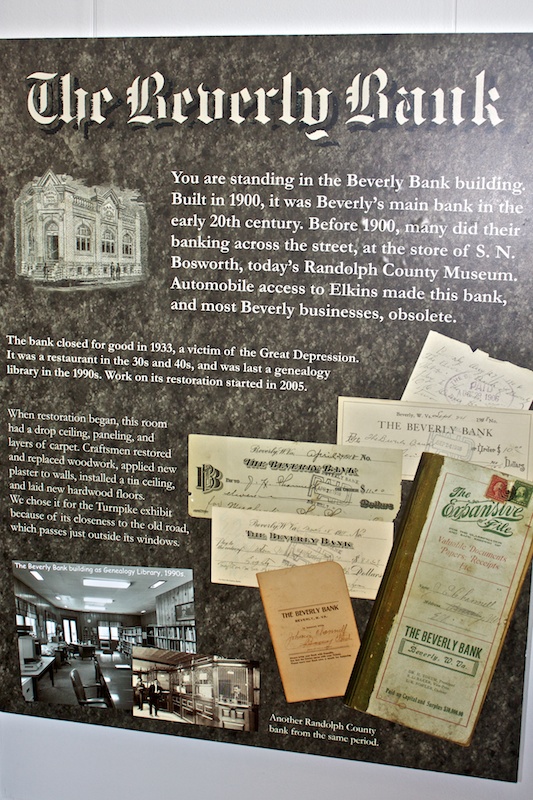 The Beverly Bank
You are standing in the Beverly Bank building.
Built in 1900, it was Beverly's main bank in the
early 20th century. Before 1900, many did their
banking across the street, at the store of S. N.
Bosworth, today's Randolph County Museum.
Automobile access to Elkins made this bank,
and most Beverly businesses, obsolete.
The bank closed for good in 1933, a victim of the Great Depression.
It was a restaurant in the 30s and 40s, and was last a genealogy
library in the 1990s. Work on its restoration started in 2005.
When restoration began, this room
had a drop ceiling, paneling, and
layers of carpet. Craftsmen restored
and replaced woodwork, applied new
plaster to walls, installed a tin ceiling,
and laid new hardwood floors.
We chose it for the Turnpike exhibit
because of its closeness to the old road,
which passes just outside its windows.
PAID
Beverly, W. Va.
THE BEVERLY BANK
Dollars
Beverly, W. Va.
No.
THE BEVERLY BANK
Dollars
Beverly W. Va.
THE BEVERLY BANK
Dollars
THE BEVERLY BANK
The
Expansive
File
Valuable Documents,
Papers, Receipts
Etc.
THE BEVERLY BANK
Beverly, W. Va.
Paid up Capital and Surplus
The Beverly Bank building as Genealogy Library, 1990s.
Another Randolph County
bank from the same period.